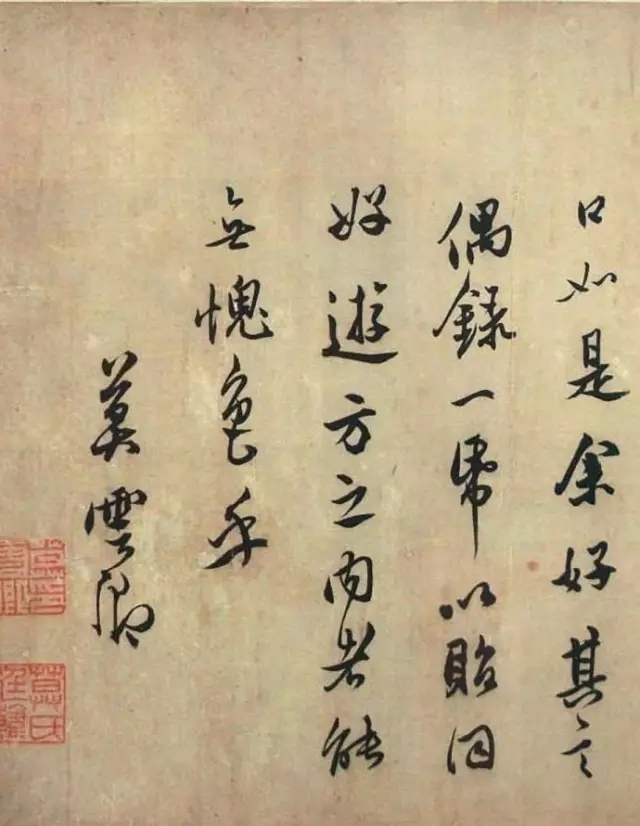 口如是余好其言
偶錄一帋以貽同
好遊方之内者能
無愧色乎
莫雲卿